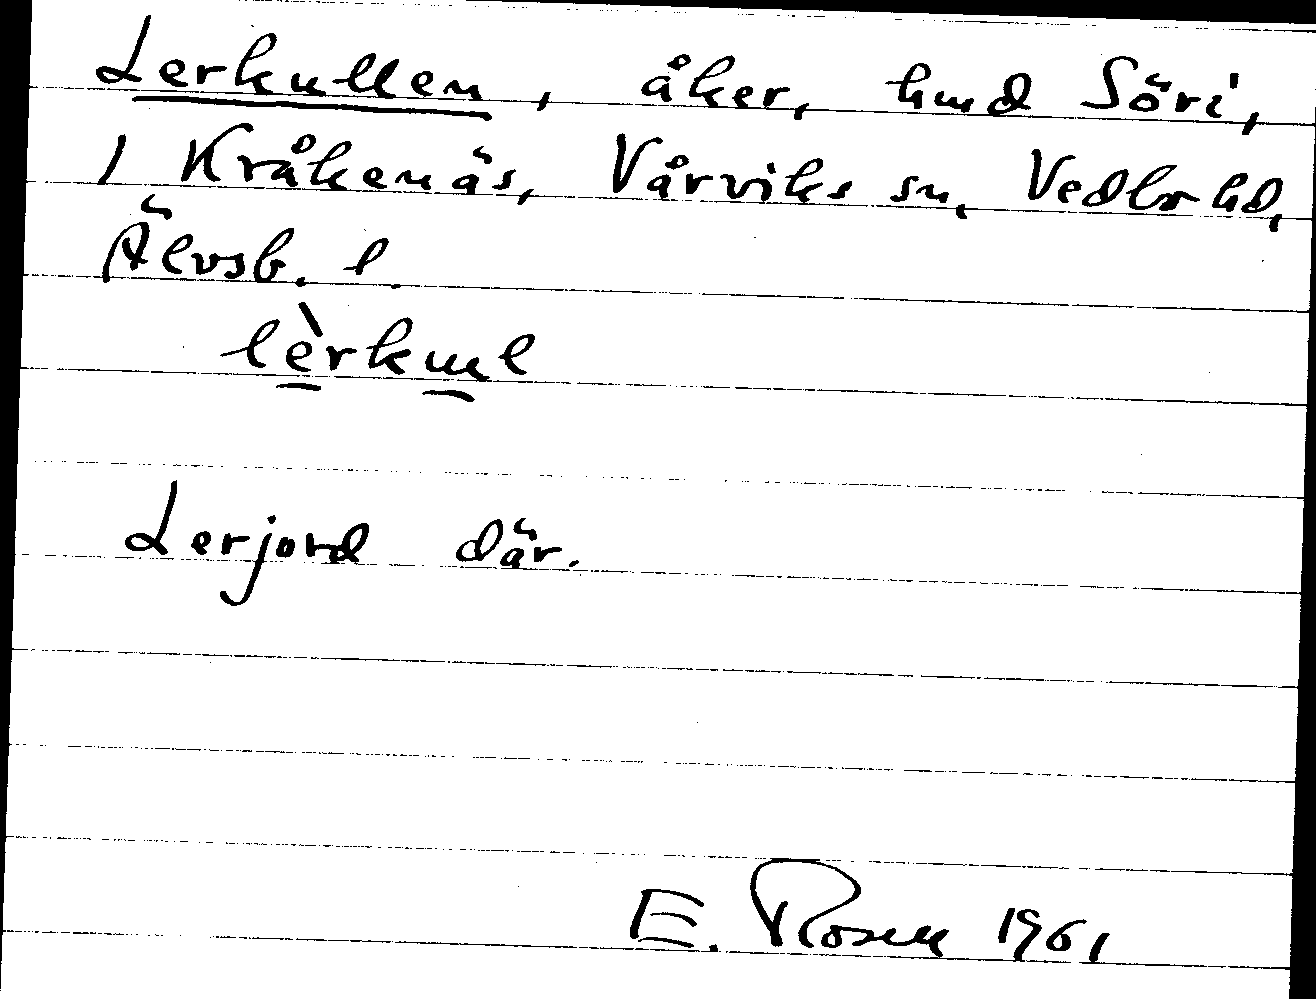 Lerkullen, åker, hmd Söri,
1 Kråkenäs, Vårviks sn, Vedbo hd,
Älvsb. l.
lèrkuul
Lerjord där.
E. Rosen 1961